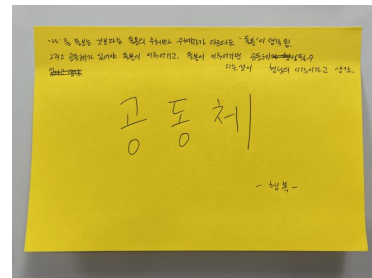 '나'를 돌보는 것보다는 돌봄의 주체와 수혜자가 다르다는 "돌봄"이 생각됨.
그리고 공동체가 있어야 돌봄이 이루어지고, 돌봄이 이루어지면 공동체
라는것이 형성의 시작이라고 생각.
공동체
- 행복 -